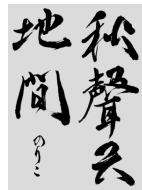 秋聲天
地間
のりこ